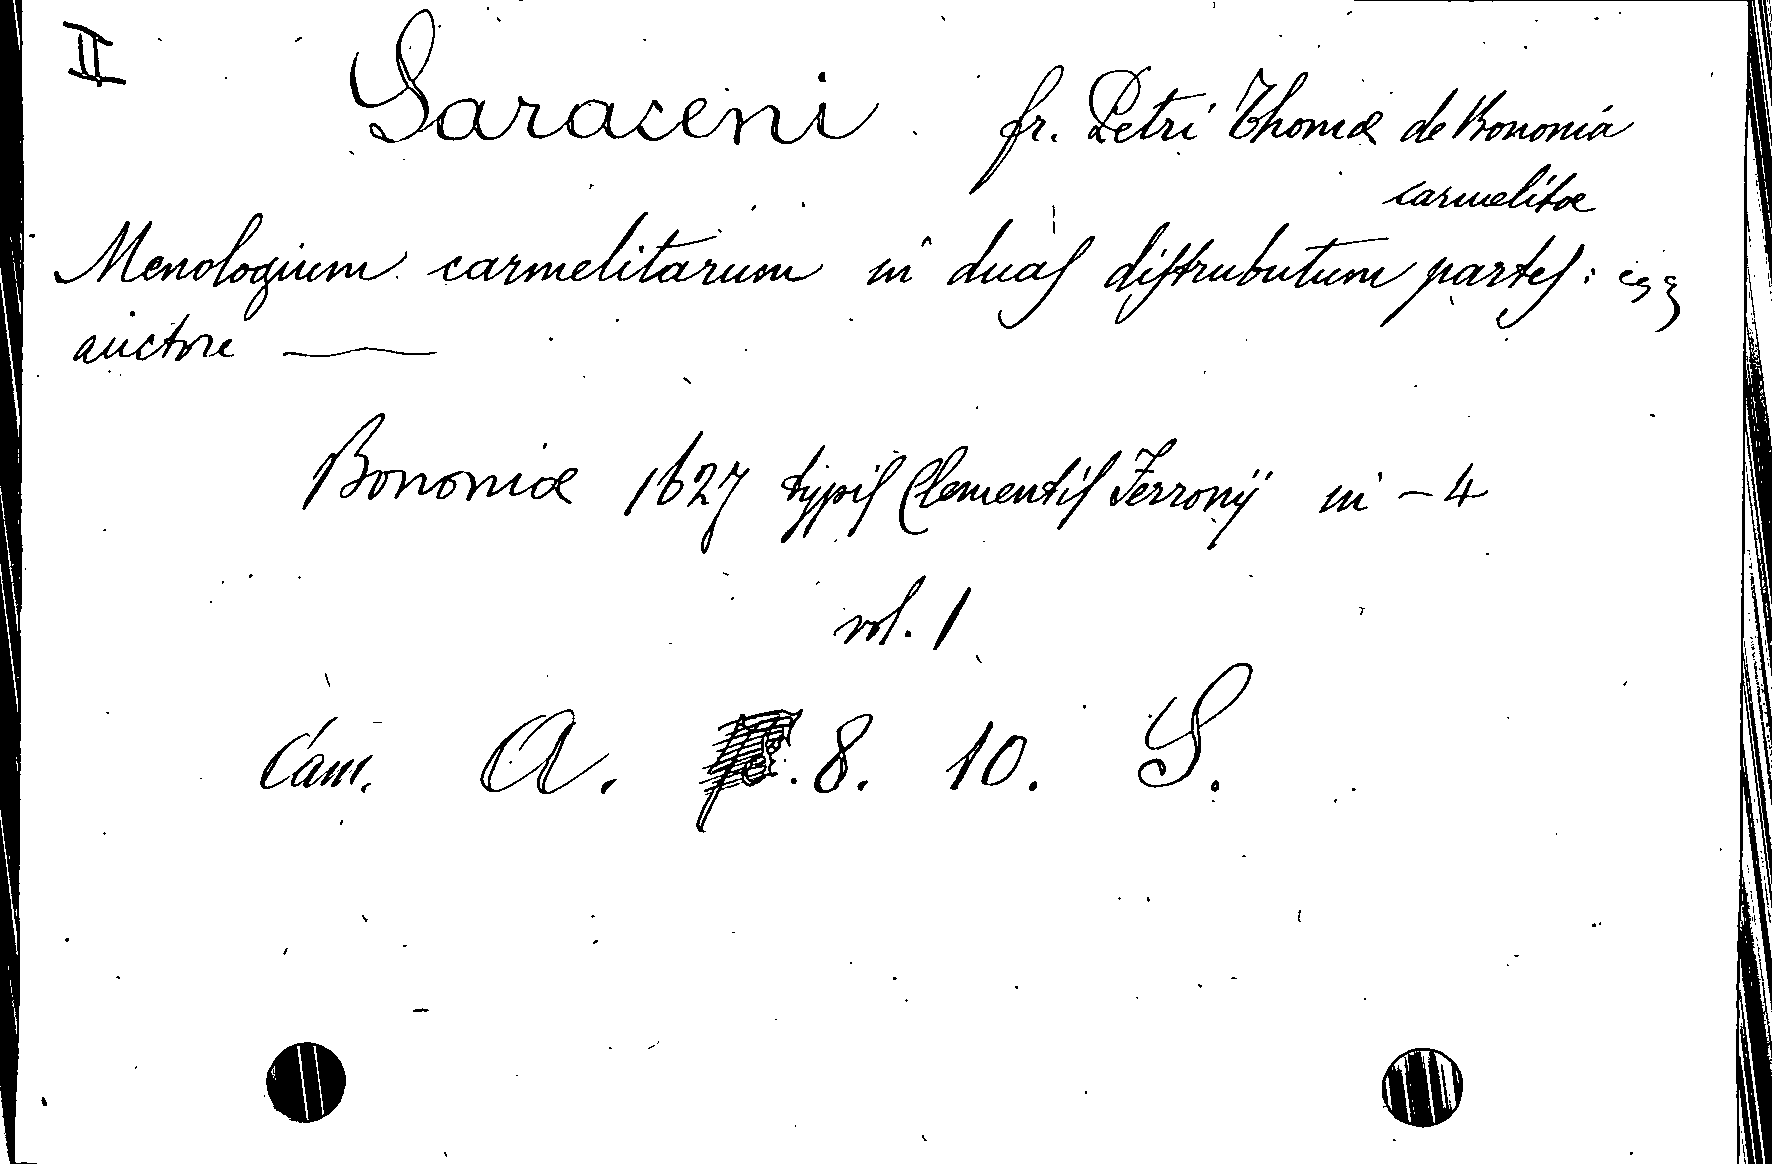 II Saraceni fr. Petri Thomæ de Bononia
carmelitæ
Menologium carmelitarum in duas distrubutum partes:
auctore ———
Bononiæ 1627 typis Clementis Ferronij in -4
vol. 1
Cam. A. 8. 10. S.